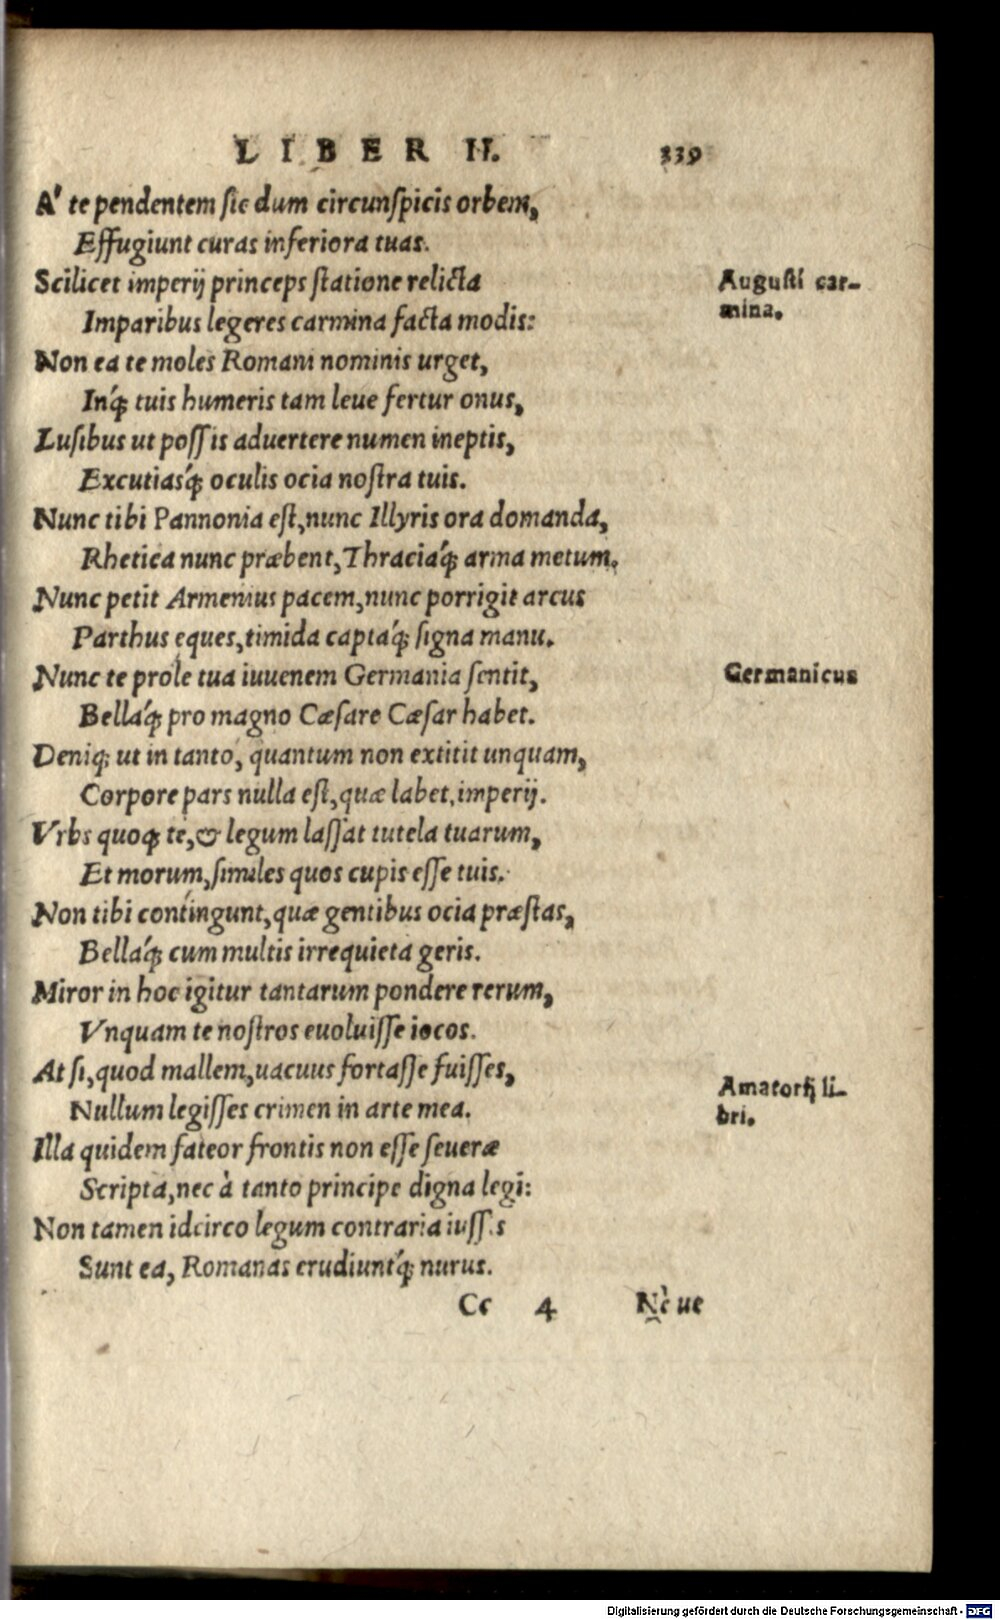 LIBER II. 339
A' te pendentem sic dum circunspicis orbem,
Effugiunt curas inferiora tuas.
Scilicet imperij princeps statione relicta
Augusti car-
mina.
Imparibus legeres carmina facta modis:
Non ea te moles Romani nominis urget,
Inq́; tuis humeris tam leue fertur onus,
Lusibus ut possis aduertere numen ineptis,
Excutiasq́; oculis ocia nostra tuis.
Nunc tibi Pannonia est, nunc Illyris ora domanda,
Rhetica nunc præbent, Thraciaq́; arma metum.
Nunc petit Armenius pacem, nunc porrigit arcus
Parthus eques, timida captaq́; signa manu.
Nunc te prole tua iuuenem Germania sentit,
Germanicus
Bellaq́; pro magno Cæsare Cæsar habet.
Deniq; ut in tanto, quantum non extitit unquam,
Corpore pars nulla est, quæ labet, imperij.
Vrbs quoq; te, & legum lassat tutela tuarum,
Et morum, similes quos cupis esse tuis.
Non tibi contingunt, quæ gentibus ocia præstas,
Bellaq́; cum multis irrequieta geris.
Miror in hoc igitur tantarum pondere rerum,
Vnquam te nostros euoluisse iocos.
At si, quod mallem, uacuus fortasse fuisses,
Amatorij li-
bri.
Nullum legisses crimen in arte mea.
Illa quidem fateor frontis non esse seueræ
Scripta, nec à tanto principe digna legi:
Non tamen idcirco legum contraria iussis
Sunt ea, Romanas erudiuntq́; nurus.
Cc 4 Nè ue
Digitalisierung gefördert durch die Deutsche Forschungsgemeinschaft - DFG